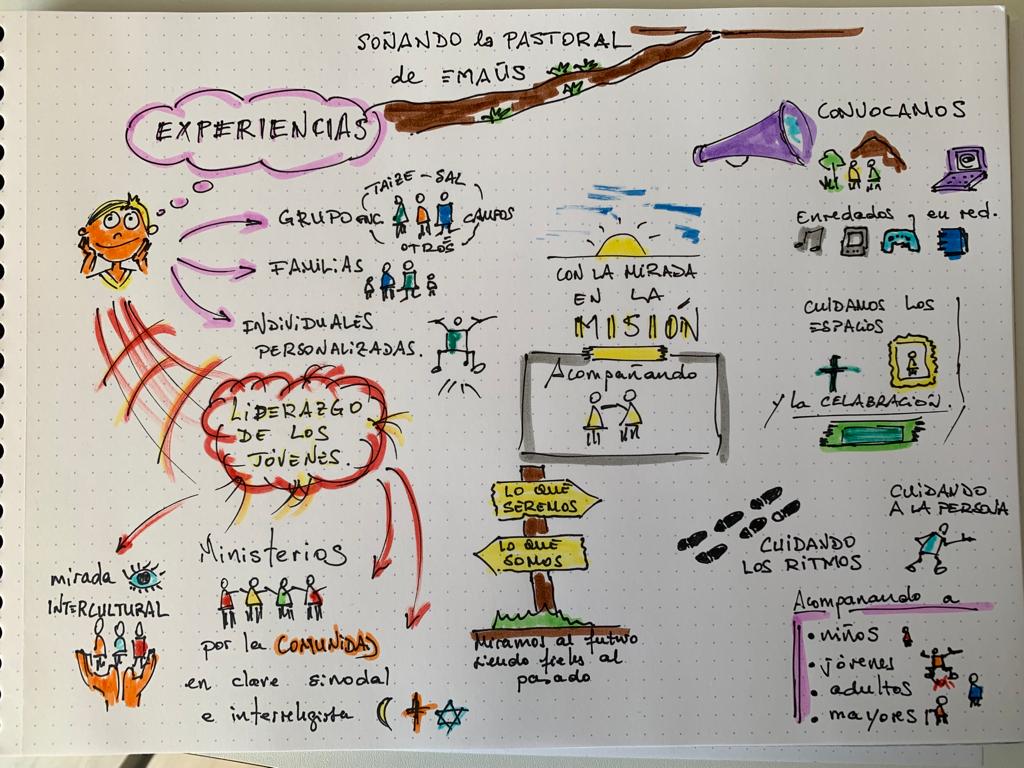 SOÑANDO la PASTORAL
de EMAÚS
EXPERIENCIAS
TAIZE - SAL
GRUPO ENC. CAMPOS
OTROS
FAMILIAS
INDIVIDUALES
PERSONALIZADAS.
LIDERAZGO
DE LOS
JÓVENES.
mirada
INTERCULTURAL
Ministerios
por la COMUNIDAD
en clave sinodal
e interreligiosa
CON LA MIRADA
EN LA
MISIÓN
Acompañando
LO QUE
SEREMOS
LO QUE
SOMOS
Miramos al futuro
siendo fieles al
pasado
CONVOCAMOS
Enredados y en red.
CUIDAMOS LOS
ESPACIOS
y la CELABRACIÓN.
CUIDANDO
LOS RITMOS
CUIDANDO
A LA PERSONA
Acompañando a
• niños
• jóvenes
• adultos
• mayores